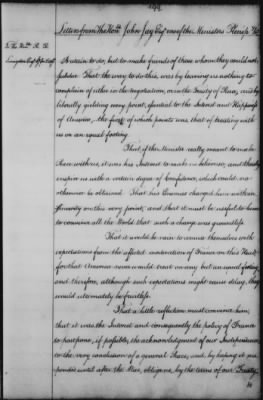 144
Letters from The Honble John Jay Esqr one of the Ministers Plenipy &c
to
Livingston Esqr Septr 1782
A certain to do; but to make friends of those whom they could not
subdue. That the way to do this, was by leaving us nothing to
complain of either in the negotiation, or in the Treaty of Peace, and by
liberally yielding every point, essential to the Interest and Happiness
of America, the first of which points was, that of treating with
us on an equal footing.
That, if the Minister really meant to make
Peace with us, it was his Interest to make us believe so, and thereby
inspire us with a certain degree of Confidence, which could no
otherwise be obtained. That his Enemies charged him with in-
sincerity on this very point, and that it must be useful to him
to convince all the World that such a charge was groundless.
That it would be vain to amuse themselves with
expectations from the affected moderation of France on this Head;
for that America never would treat on any but an equal footing
and therefore, although such expectations might cause delay, they
would ultimately be fruitless.
That a little reflection must convince him,
that it was the Interest and consequently the policy of France
to postpone, if possible, the acknowledgment of our Independence
to the very conclusion of a general Peace, and, by keeping it sus-
pended until after the War, oblige us, by the terms of our Treaty